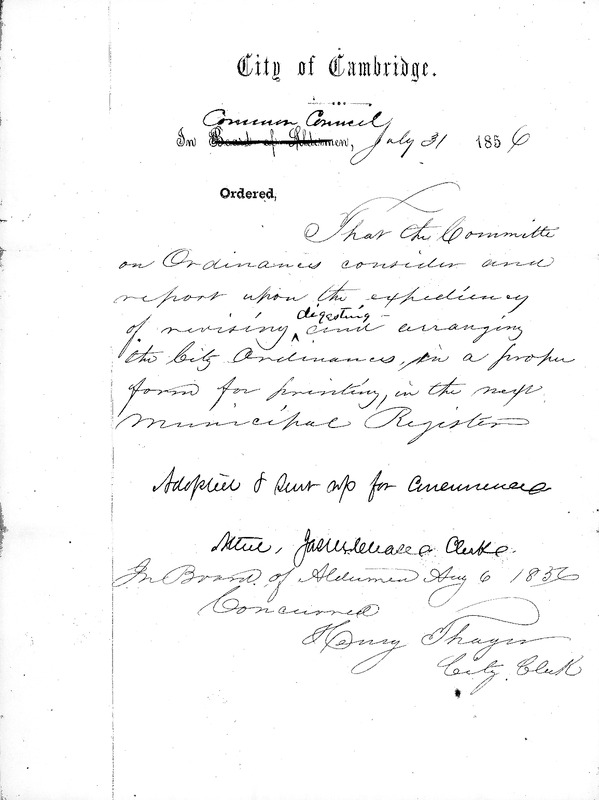 City of Cambridge.
Common Council
In Board of Aldermen, July 31 1856
Ordered,
That the Committe
on Ordinances consider and
report upon the expediency
digesting
of revising and arranging
the City Ordinances, in a proper
form for printing, in the next
Municipal Register
Adopted & sent up for concurrence
Attest, Clerk.
In Board of Aldermen Aug 6 1856
Concurred
Henry Thayer
City Clerk